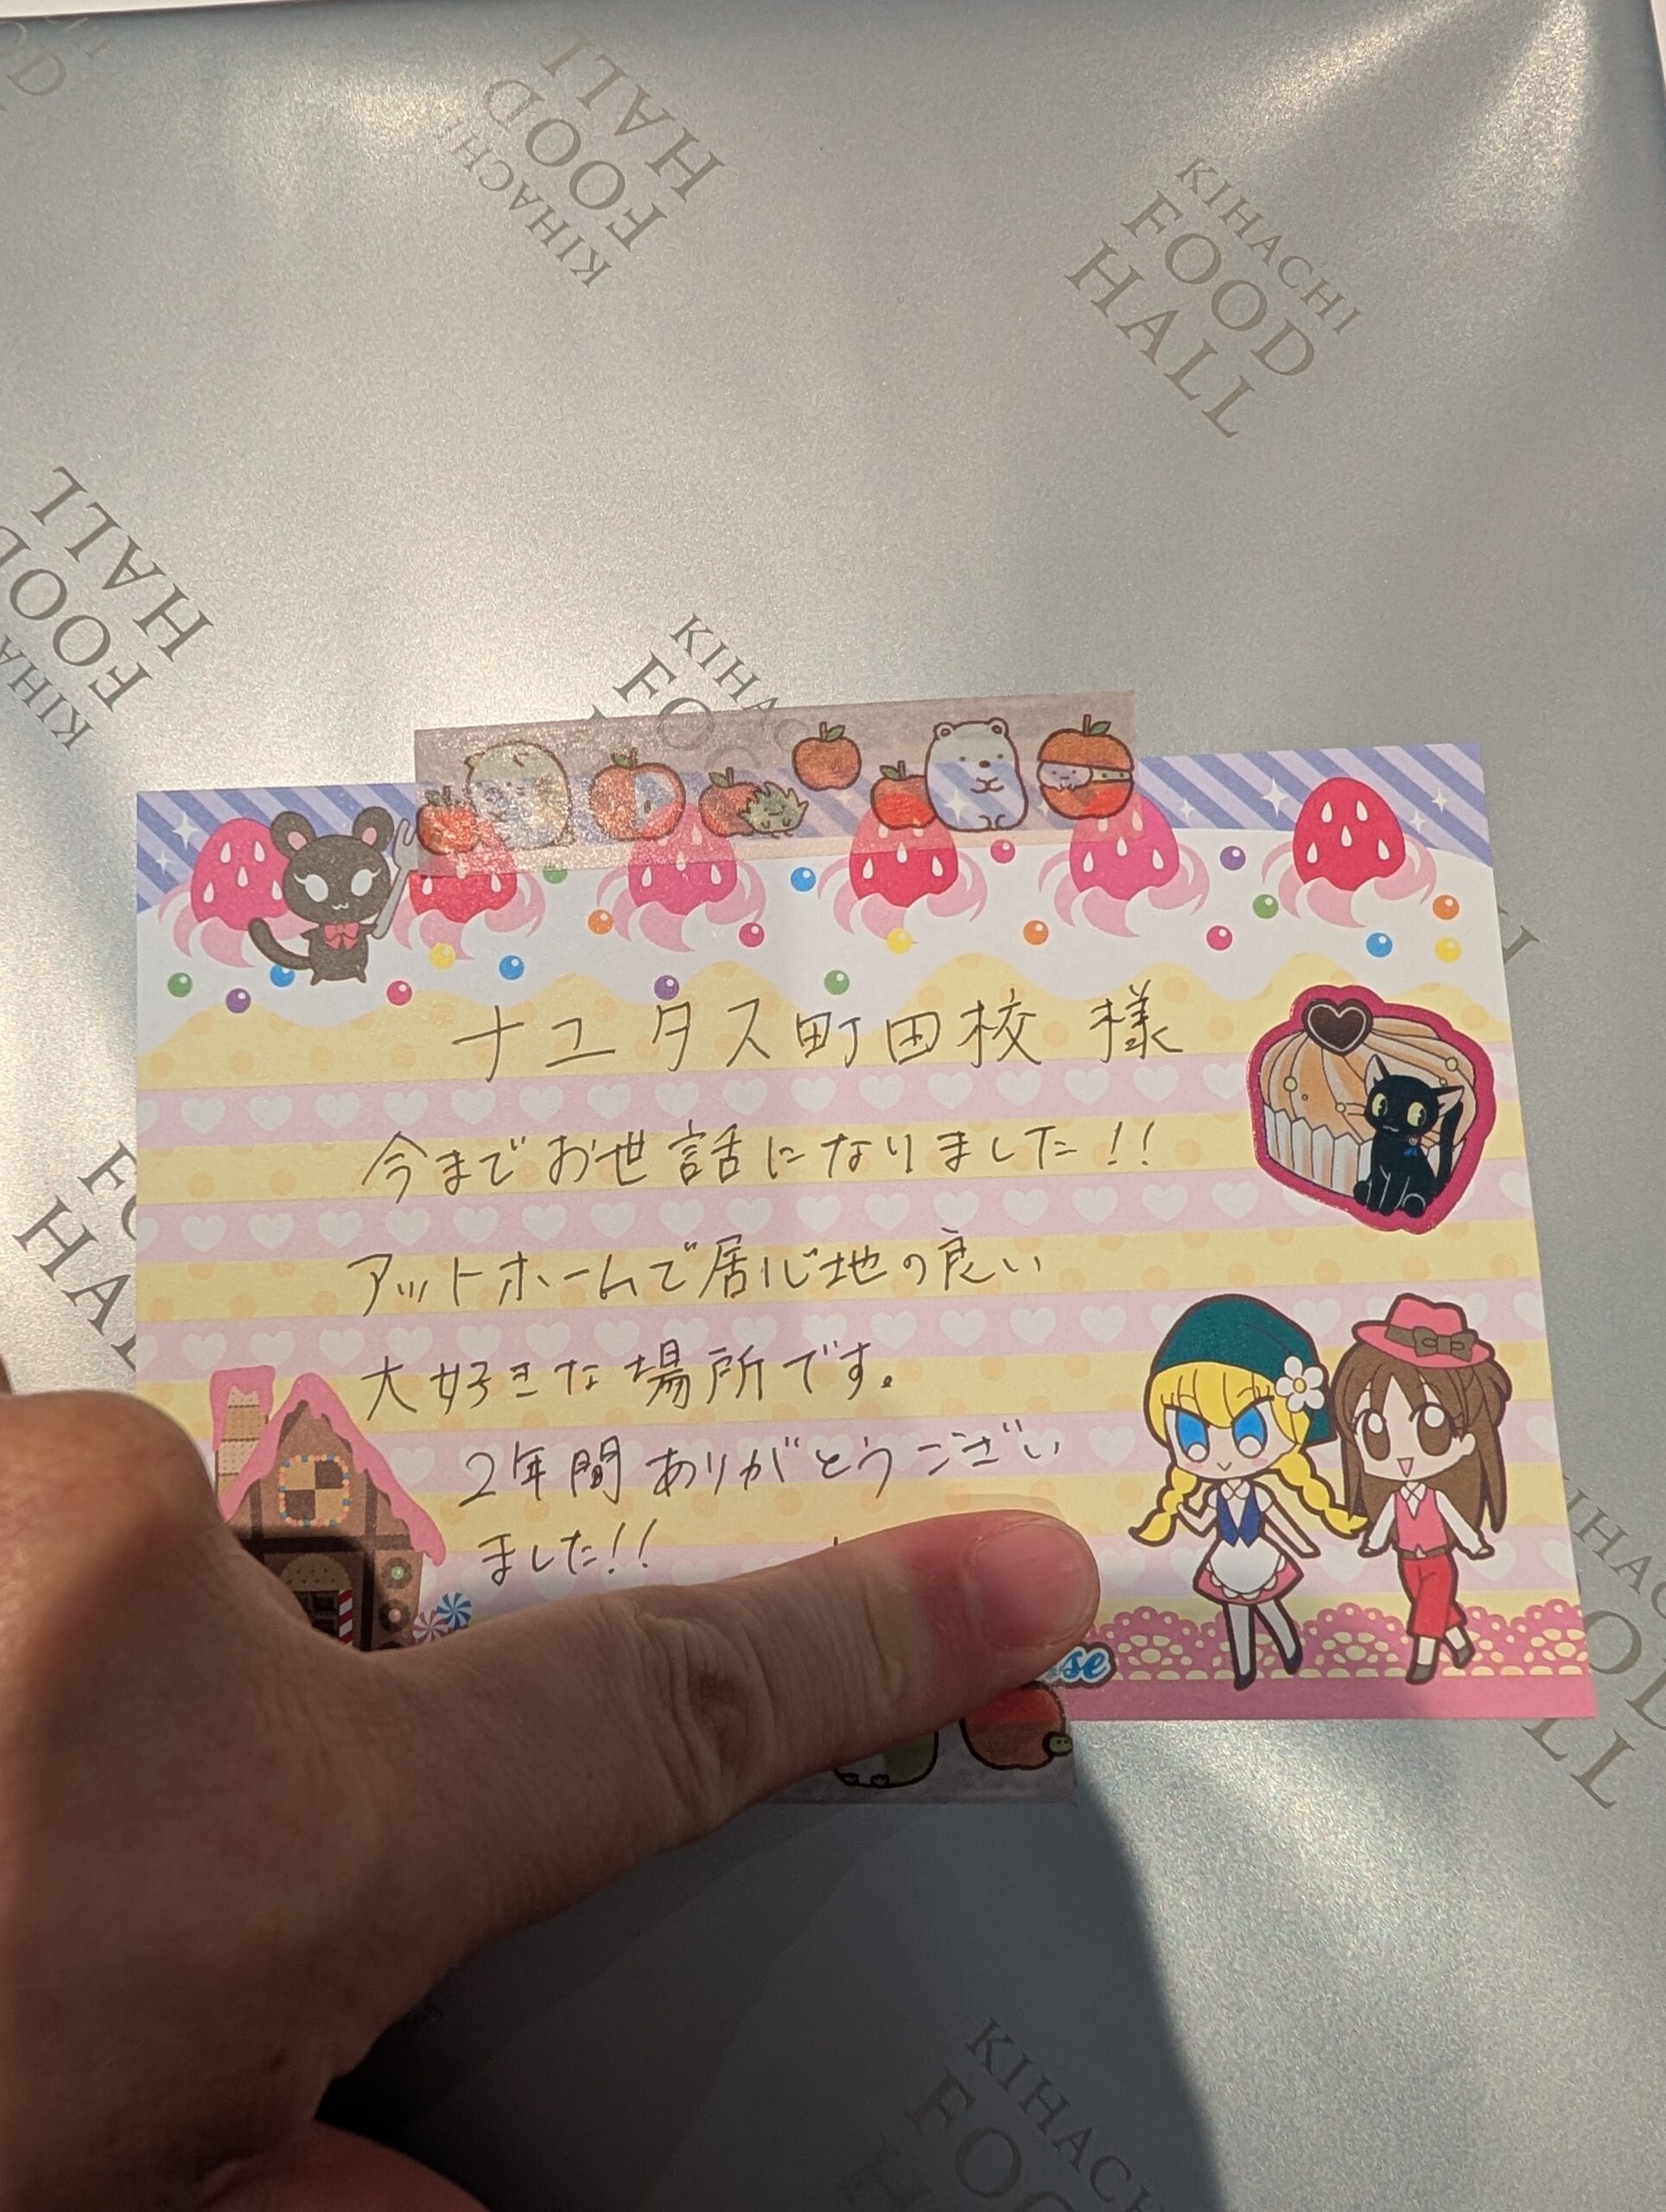 KIHACHI
FOOD
HALL
KIHACHI
FOOD
HALL
KIHACHI
FOOD
HALL
ナユタス町田校 様
今までお世話になりました!!
アットホームで居心地の良い
大好きな場所です。
2年間ありがとうござい
ました!!
KIHACHI
FOOD